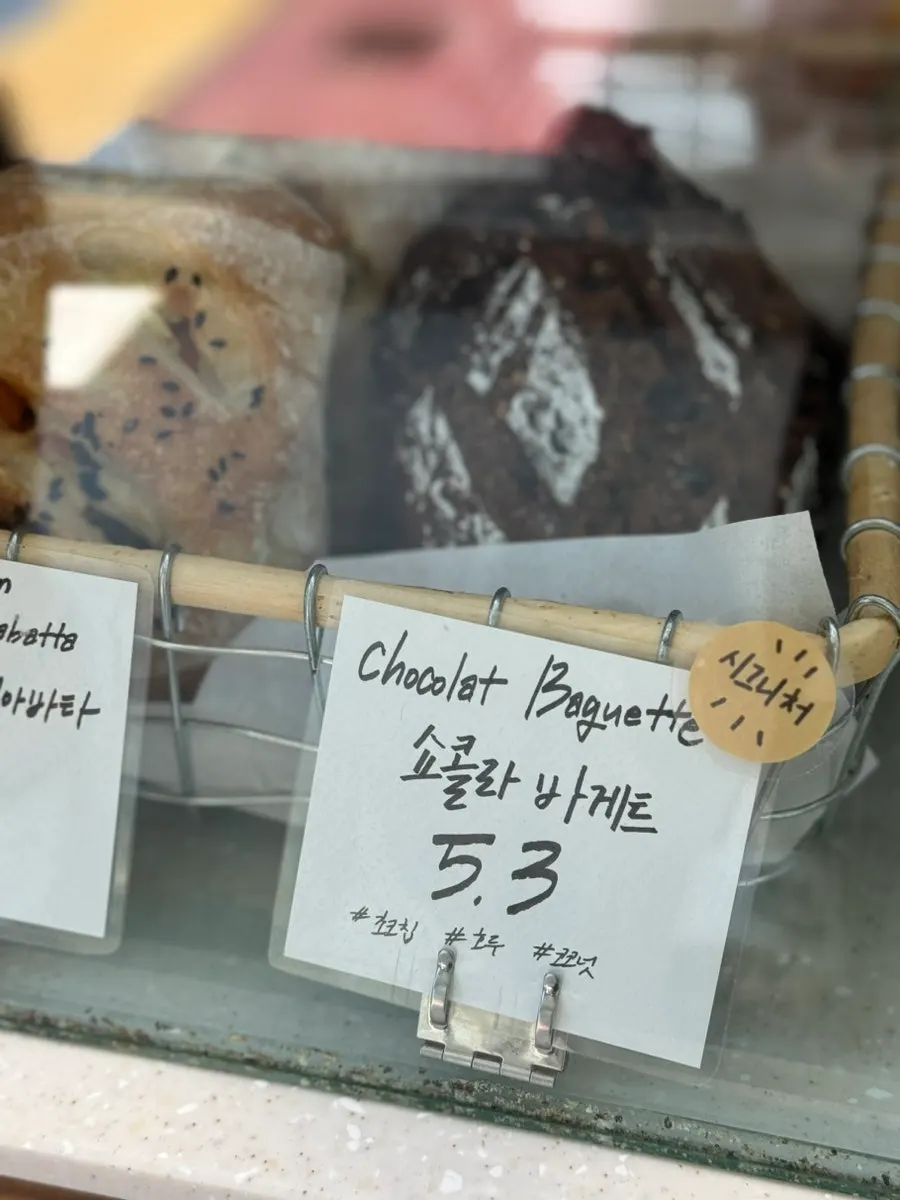 abatta
아바타
Chocolat Baguette
시그니처
쇼콜라 바게트
5.3
#초코칩 #호두 #코코넛